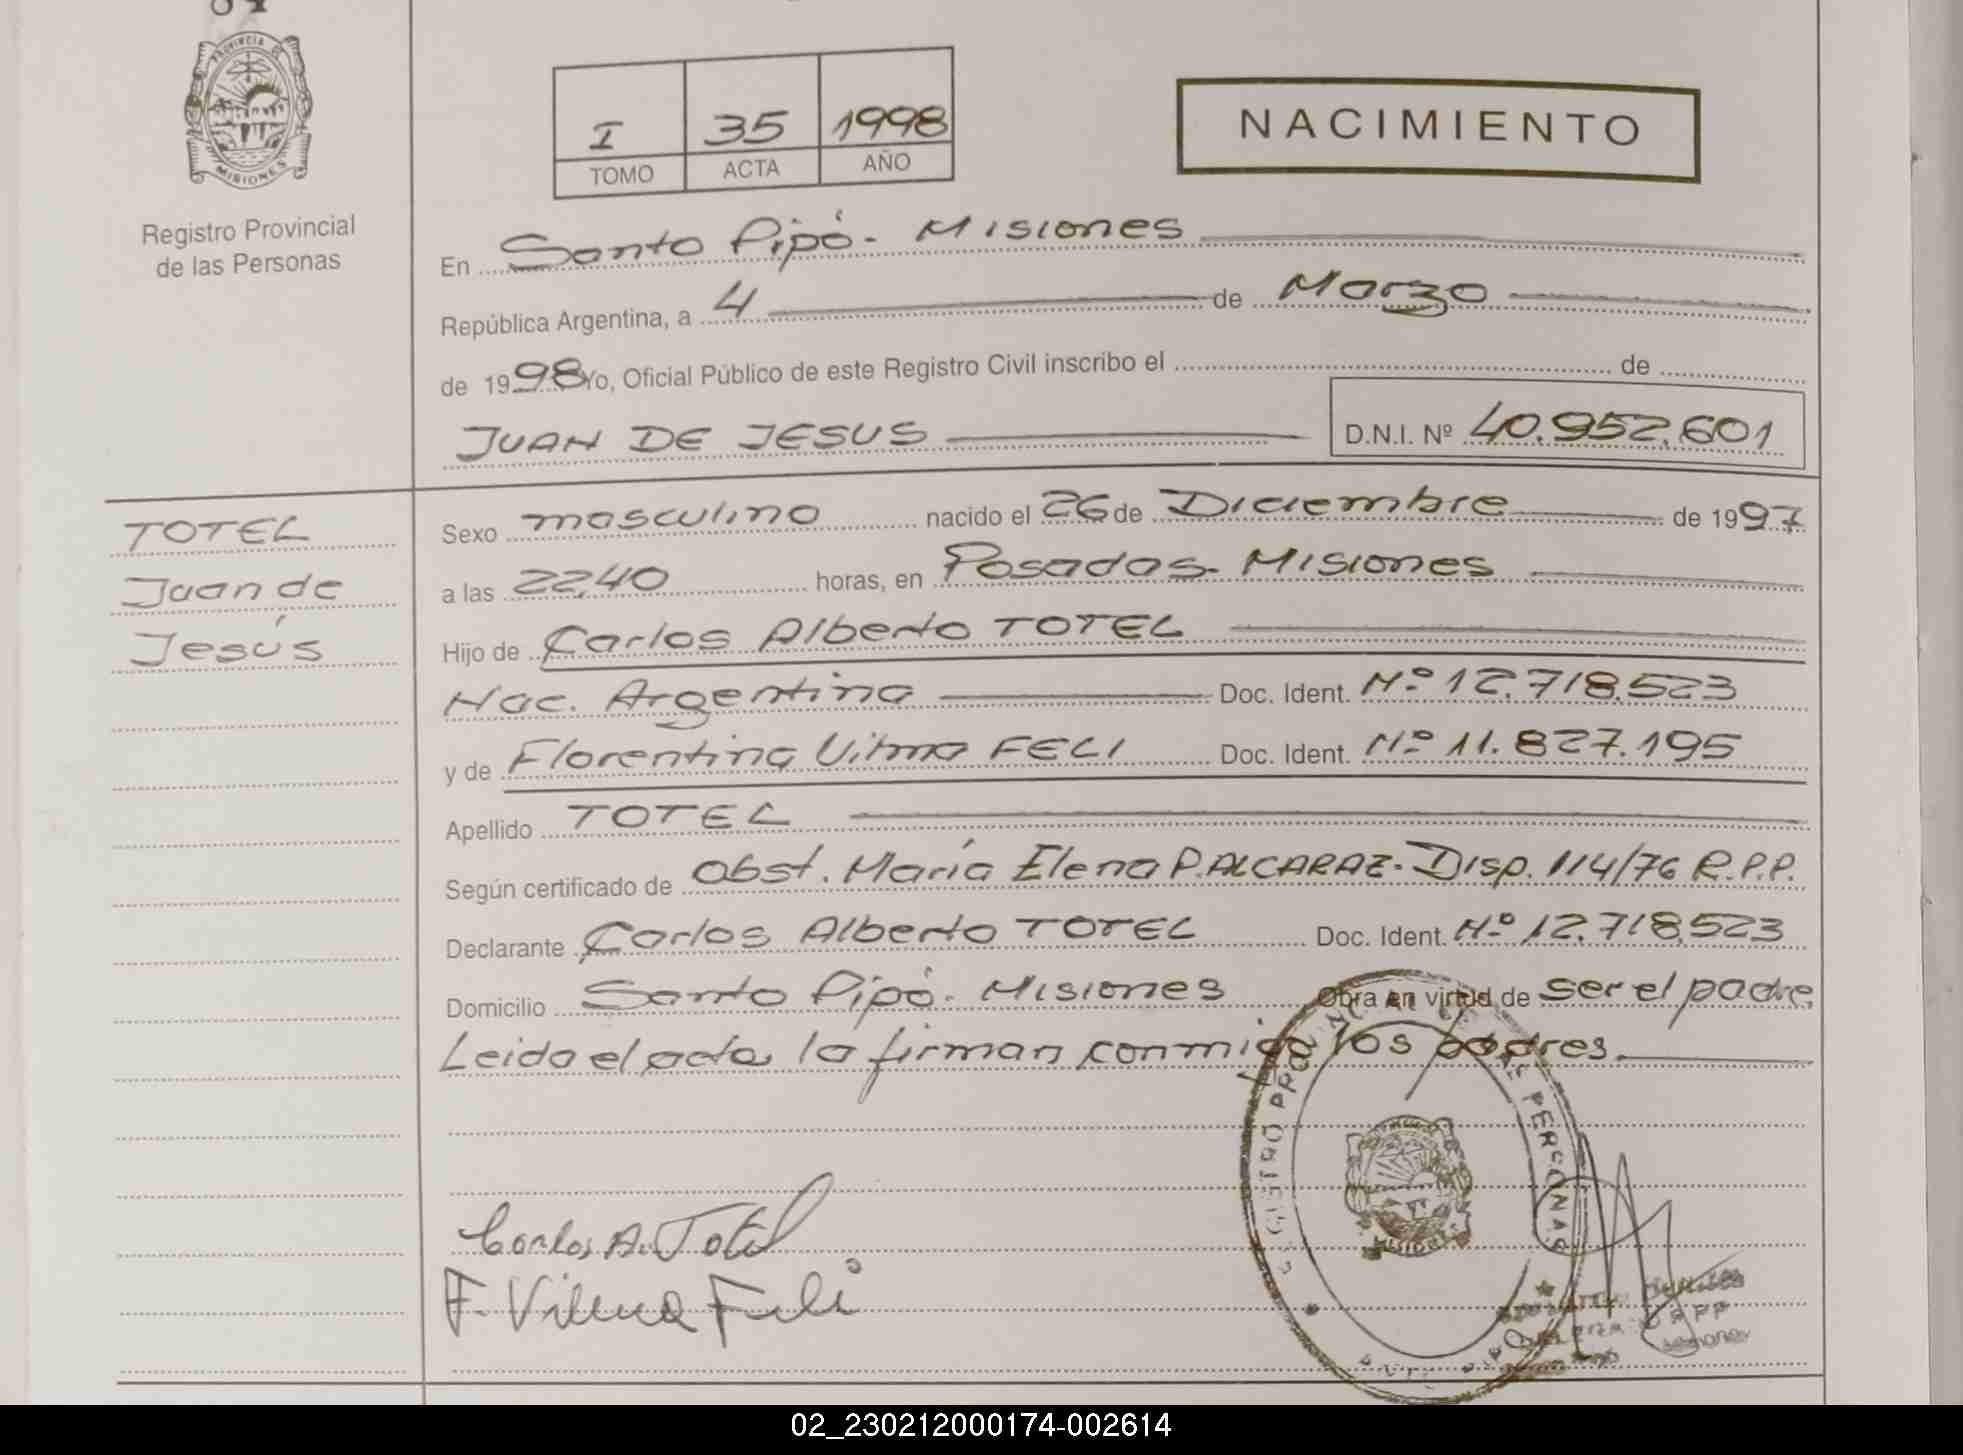 PROVINCIA DE
MISIONES
Registro Provincial
de las Personas
I 35 1998
TOMO ACTA AÑO
NACIMIENTO
En Santo Pipó. Misiones
República Argentina, a 4 de Marzo
de 1998 Yo, Oficial Público de este Registro Civil inscribo el de
JUAN DE JESUS D.N.I. Nº 40.952.601
TOTEL
Juan de
Jesús
Sexo masculino nacido el 26 de Diciembre de 1997
a las 22,40 horas, en Posadas. Misiones
Hijo de Carlos Alberto TOTEL
Nac. Argentina Doc. Ident. Nº 12.718.523
y de Florentina Vilma FELI Doc. Ident. Nº 11.827.195
Apellido TOTEL
Según certificado de Obst. María Elena P. ALCARAZ. Disp. 114/76 R.P.P.
Declarante Carlos Alberto TOTEL Doc. Ident. Nº 12.718.523
Domicilio Santo Pipó. Misiones Obra en virtud de ser el padre
Leido el acta la firman conmigo los padres.
REGISTRO PROVINCIAL DE LAS PERSONAS
MISIONES
Carlos A. Totel
F. Vilma Feli
02_230212000174-002614